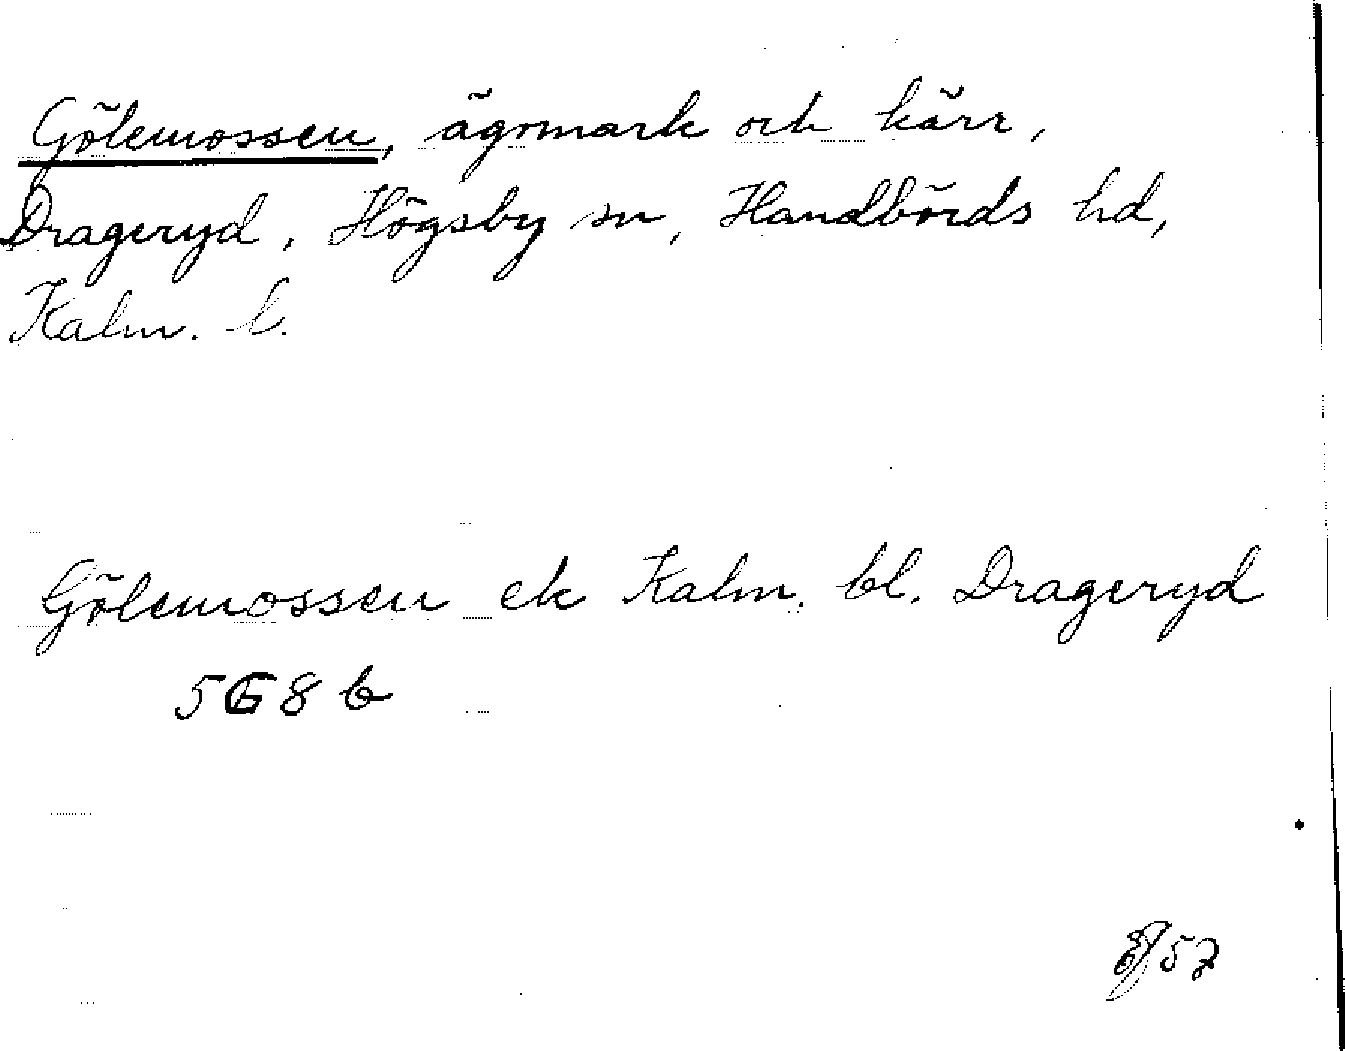 Gölemossen, ägomark och kärr,
Drageryd, Högsby sn, Handbörds hd,
Kalm. l.
Gölemossen ek Kalm. bl. Drageryd
5G8b
57